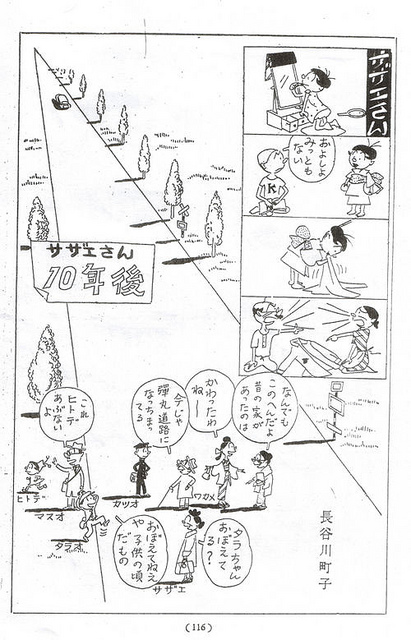 サザエさん
およしよ
みっとも
ない
K
サザエさん
10年後
なんでも
このへんだよ
昔の家が
あったのは
かわったわ
ねー
今じゃ
弾丸道路に
なっちまっ
てる
これ
ヒトデ
あぶない
よ
ヒトデ
マスオ
タラオ
カツオ
ワカメ
サザエ
タラちゃん
おぼえて
る?
おぼえてねえ
や子供の頃
だもの
長谷川町子
(116)